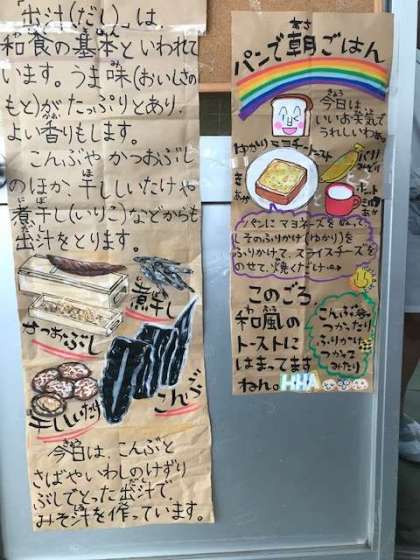 「出汁(だし)」は、
和食の基本といわれて
います。うま味(おいしさの
もと)がたっぷりとあり、
よい香りもします。
こんぶや かつおぶし
のほか、干ししいたけや
煮干し(いりこ)などからも
出汁をとります。
煮干し
かつおぶし
こんぶ
干ししいたけ
今日は、こんぶと
さばやいわしのけずり
ぶしでとった出汁で、
みそ汁を作っています。
パンで朝ごはん
今日は
いいお天気で
うれしいわぁ
ゆかりマヨチーズトースト
パンにマヨネーズをぬって、
そのふりかけ(ゆかり)を
ふりかけて、スライスチーズを
のせて、焼くだけ
このごろ
和風の
トーストに
はまってます
ねん。HHA
こんぶ
つかったり
ふりかけ
つかって
みたり